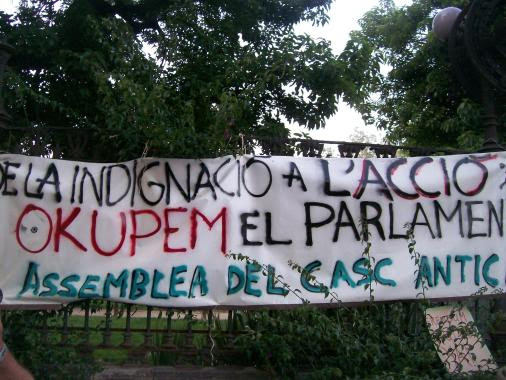 DE LA INDIGNACIÓ A L'ACCIÓ:
OKUPEM EL PARLAMEN
ASSEMBLEA DEL CASC ANTIC